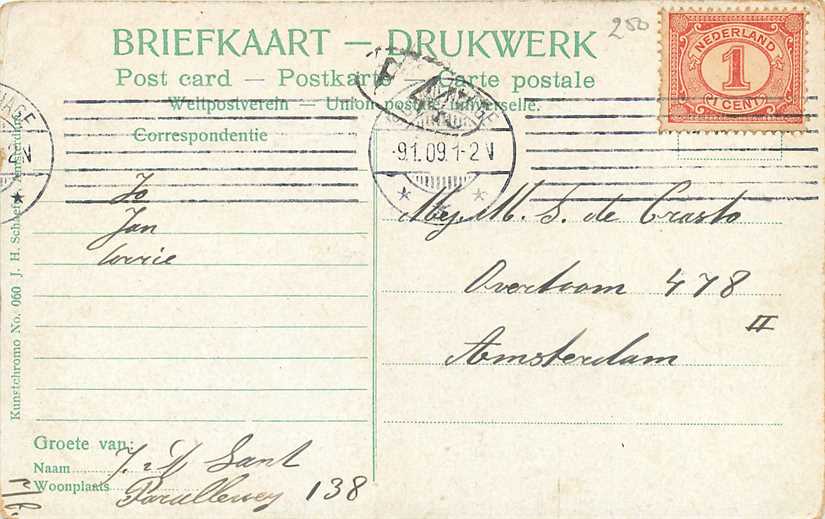 250
BRIEFKAART — DRUKWERK
Post card — Postkarte — Carte postale
Weltpostverein — Union postale universelle.
NEDERLAND
1
1 CENT
Correspondentie
-9.1.09.1-2 V
2 V
Jo
Jan
Corrie
Mej. M. S. de Crasto
Overtoom 478
II
Amsterdam
Kunstchromo No. 060 J. H. Schaefer, Amsterdam
Groete van:
Naam
Sant
Woonplaats
Parallelweg 138